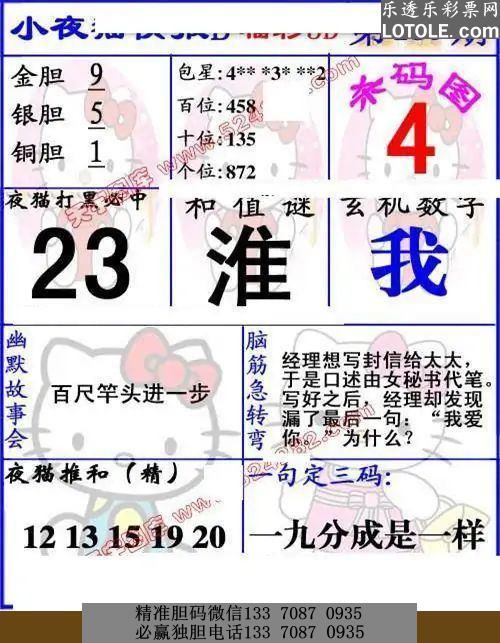 乐透乐彩票网
LOTOLE.COM
小夜猫
福彩3D
第
期
金胆 9
银胆 5
铜胆 1
包星:4** *3* **2
百位:458
十位:135
个位:872
杀码图
4
夜猫打黑必中
23
和值谜
淮
玄机数字
我
幽默故事会
百尺竿头进一步
脑筋急转弯
经理想写封信给太太,
于是口述由女秘书代笔。
写好之后,经理却发现
漏了最后一句:“我爱
你。”为什么?
夜猫推和(精)
12 13 15 19 20
一句定三码:
一九分成是一样
精准胆码微信133 7087 0935
必赢独胆电话133 7087 0935